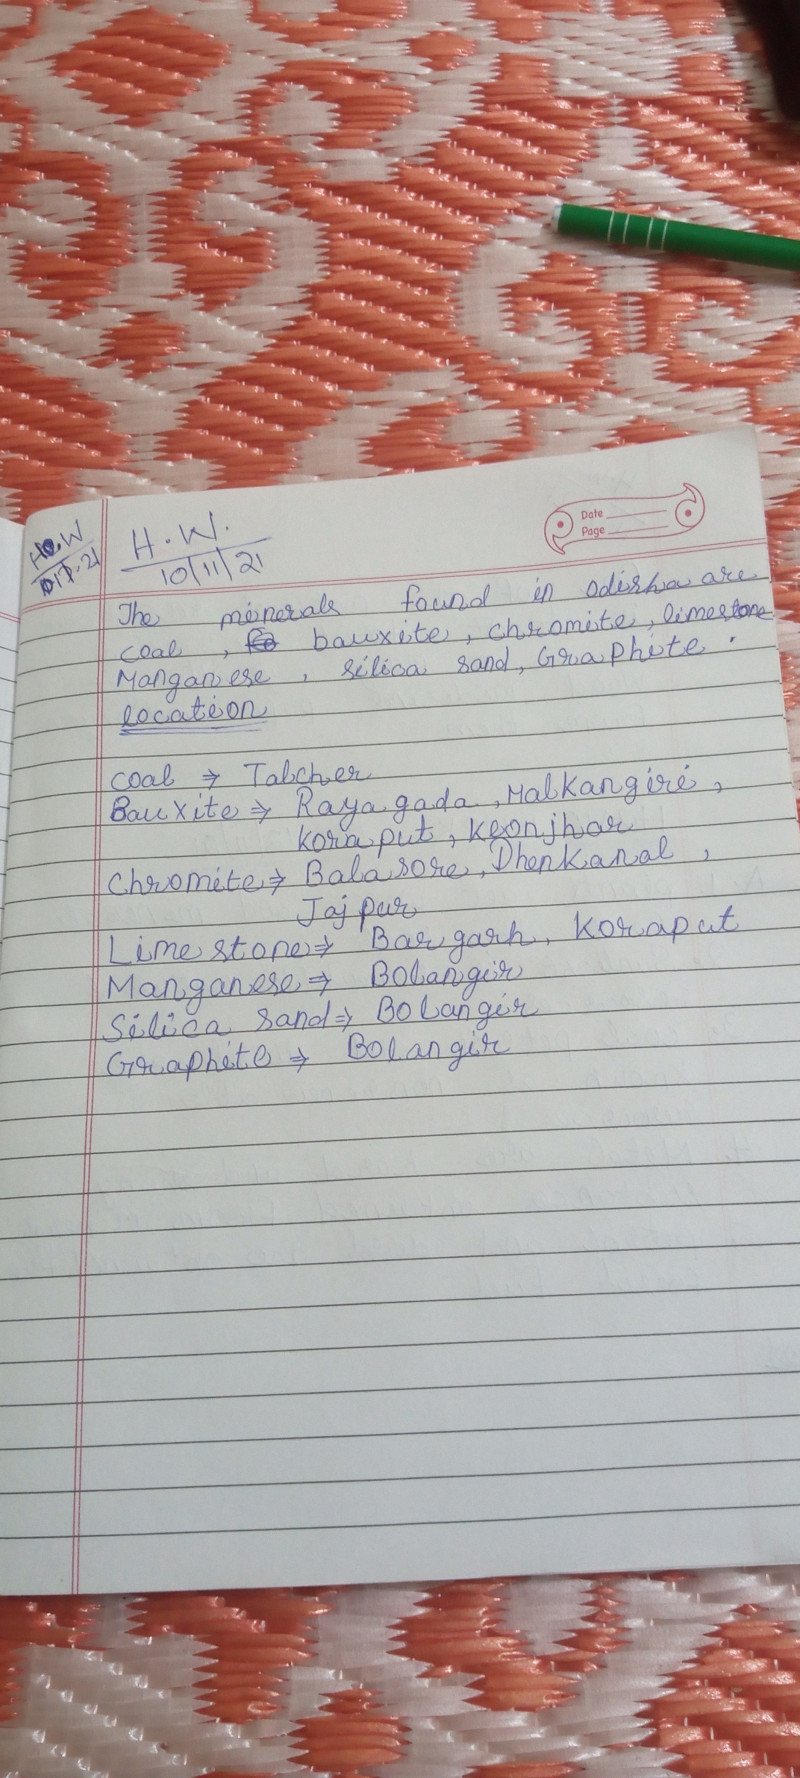 H.W.
10/11/21
Date
Page
The minerals found in odisha are
coal, bauxite, chromite, limestone
Manganese, silica sand, Graphite.
location
coal ⇒ Talcher
Bauxite ⇒ Rayagada, Malkangiri,
koraput, keonjhar
Chromite ⇒ Balasore, Dhenkanal,
Jajpur
Limestone ⇒ Bargarh, Koraput
Manganese ⇒ Bolangir
Silica sand ⇒ Bolangir
Graphite ⇒ Bolangir